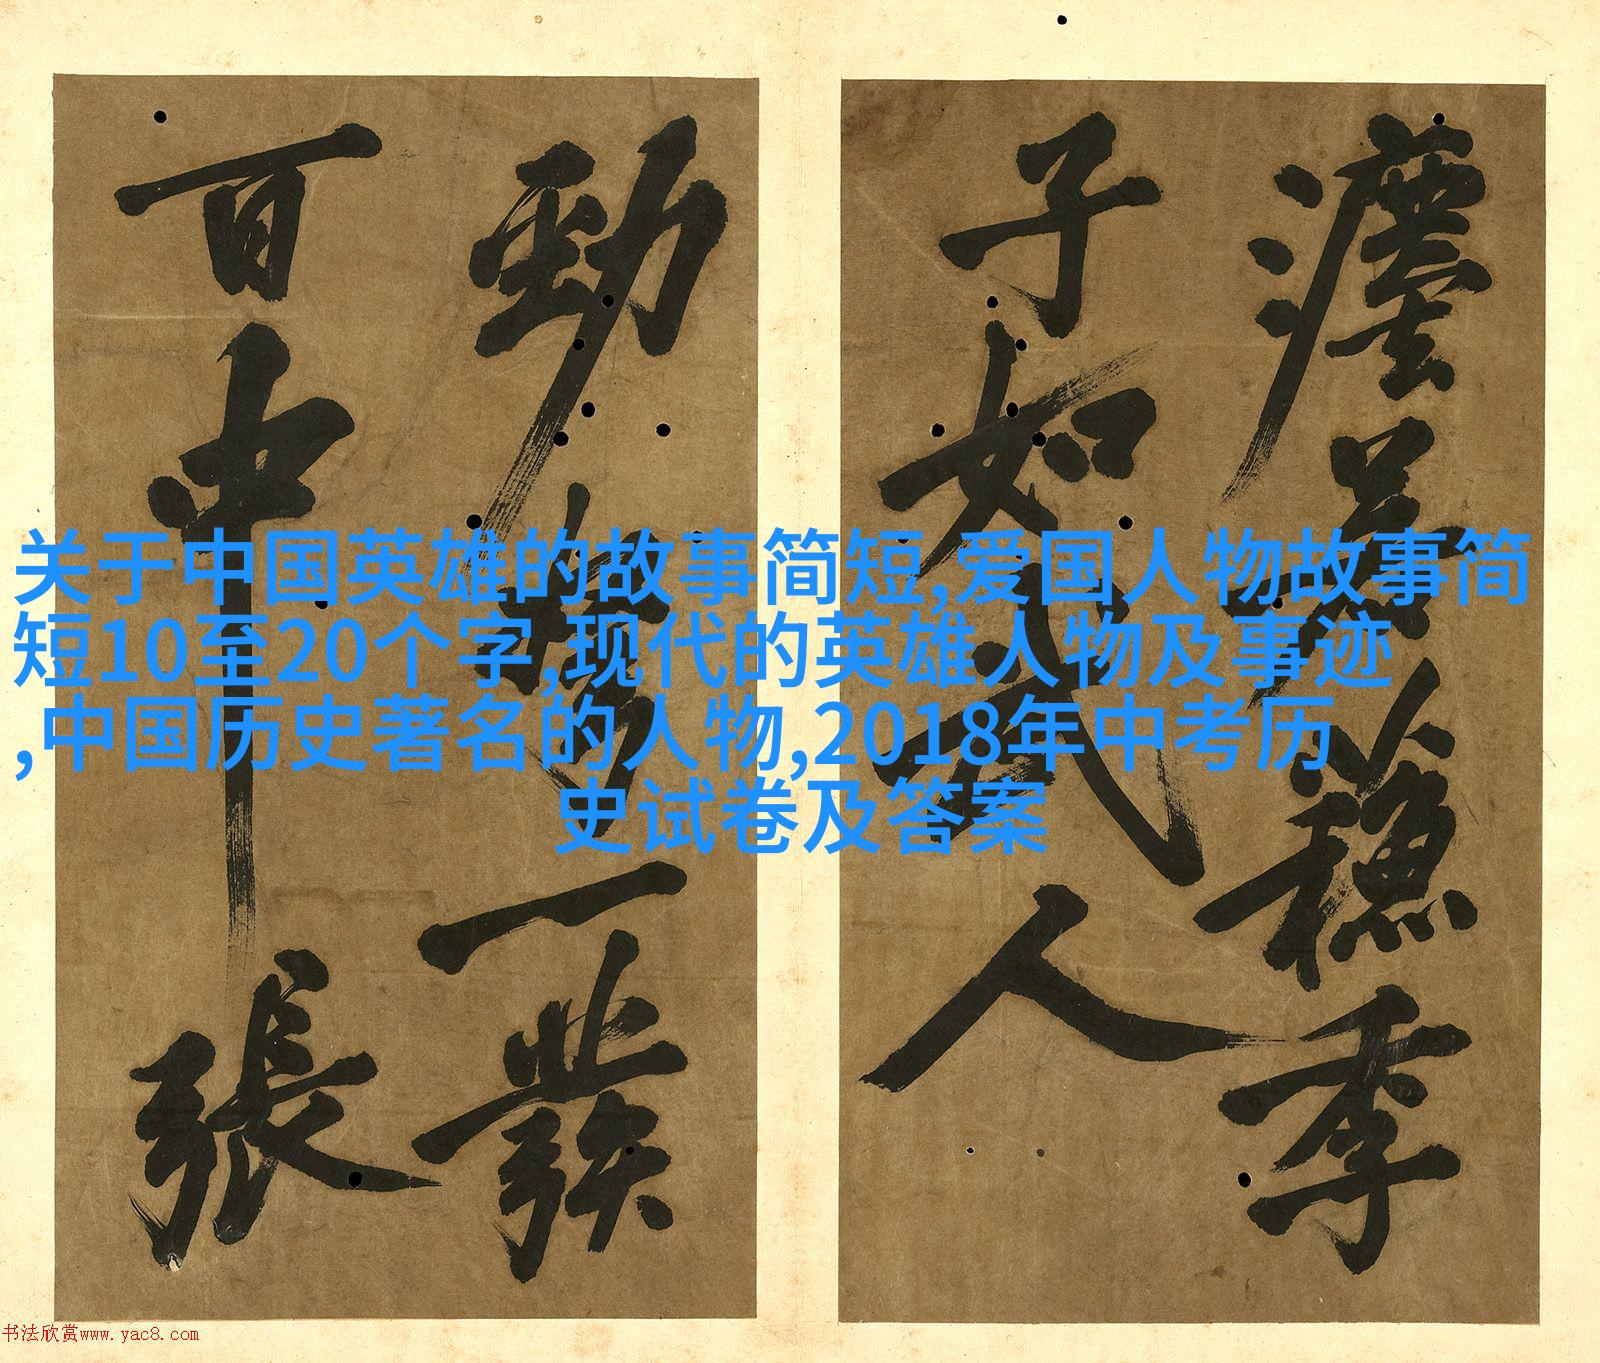 穩季
子如人
勁一發
百中張
关于中国英雄的故事简短,爱国人物故事简
短10至20个字,现代的英雄人物及事迹
,中国历史著名的人物,2018年中考历
史试卷及答案
书法欣赏www.yac8.com